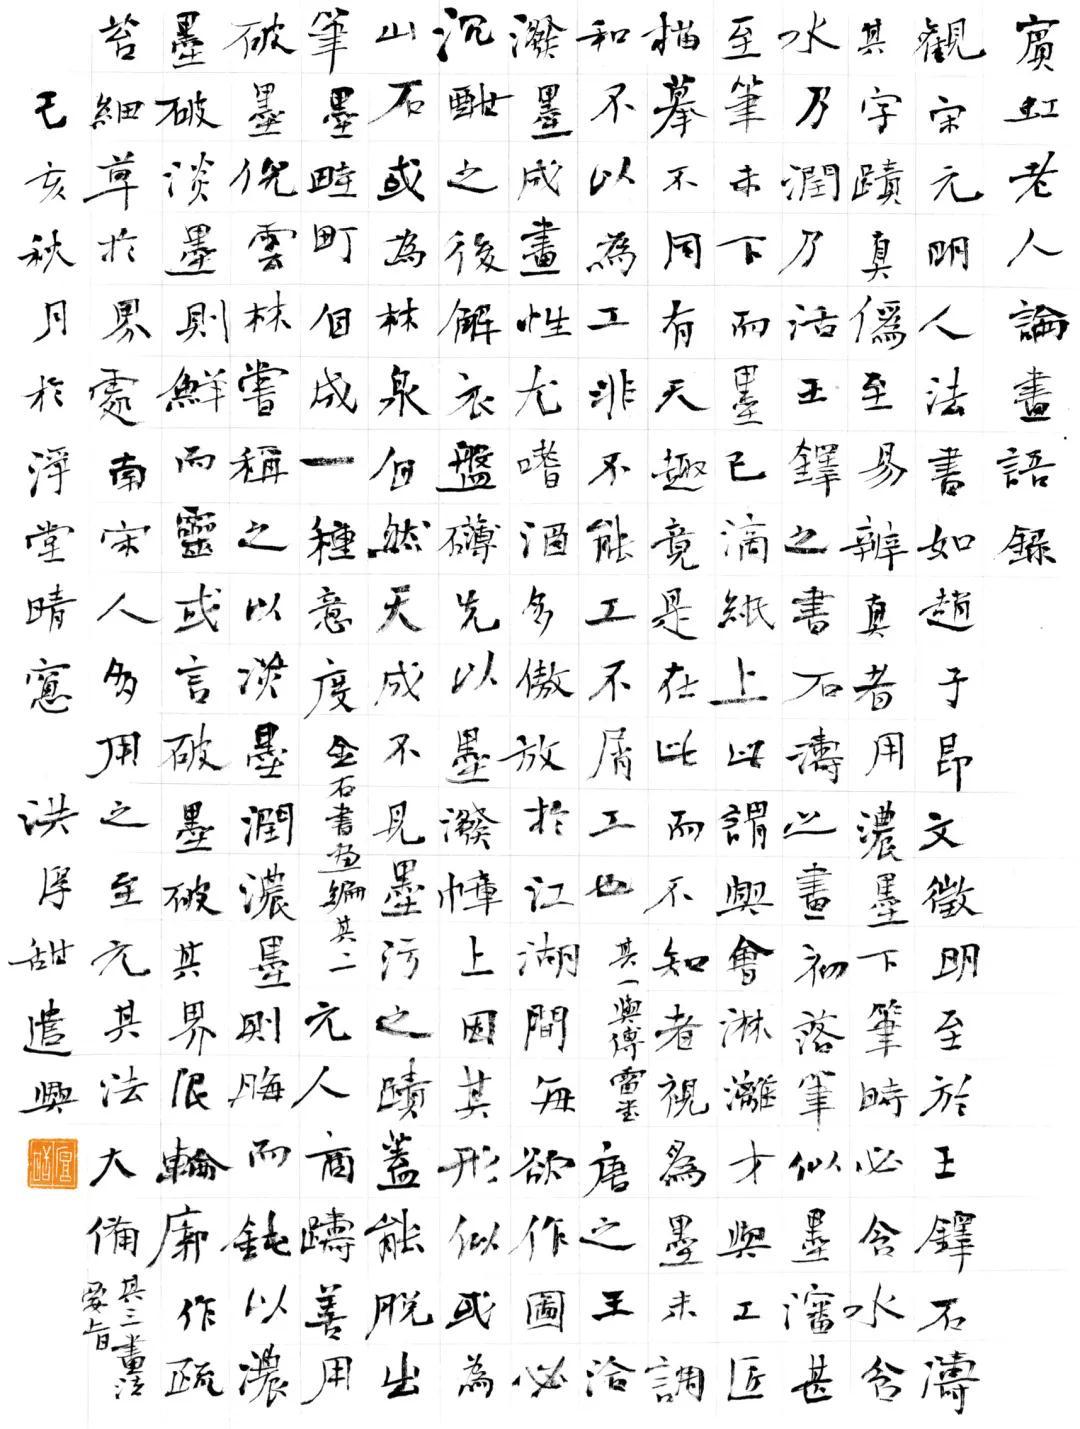 賓虹老人論畫語錄
觀宋元明人法書如趙子昂文徵明至於王鐸石濤
其字蹟真僞至易辨真者用濃墨下筆時必含水含
水乃潤乃活王鐸之書石濤之畫初落筆似墨瀋甚
至筆未下而墨已滴紙上此謂興會淋灕才與工匠
描摹不同有天趣竟是在此而不知者視為墨未調
和不以為工非不能工不屑工也
其一與傅雷書
唐之王洽
潑墨成畫性尤嗜酒多傲放於江湖間每欲作圖必
沉酣之後解衣盤礴先以墨潑幛上因其形似或為
山石或為林泉自然天成不見墨污之蹟蓋能脫出
筆墨畦町自成一種意度
金石書畫編其二
元人商躊善用
破墨倪雲林嘗稱之以淡墨潤濃墨則晦而鈍以濃
墨破淡墨則鮮而靈或言破墨破其界限輪廓作疏
苔細草於界處南宋人多用之至元其法大備
其三畫法要旨
己亥秋月於淨堂晴窗 洪厚甜遣興